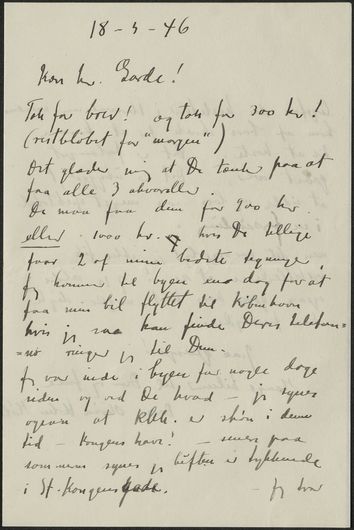 18-5-46
Kære hr. Garde!
Tak for brev! og tak for 300 kr!
(restbeløbet for "morgen")
Det glæder mig at De tænker paa at
faa alle 3 akvareller.
De maa faa dem for 900 kr
eller 1000 kr. hvis De tillige
faar 2 af mine bedste tegninger
Jeg kommer til byen en dag for at
faa min bil flyttet til København
hvis jeg saa kan finde Deres telefon=
=no ringer jeg til Dem.
Jeg var inde i byen for nogle dage
siden og ved De hvad - jeg synes
ogsaa at Kbh. er skøn i denne
tid - Kongens have! - senere paa
sommeren synes jeg luften er trykkende
i St. Kongensgade.
- Jeg